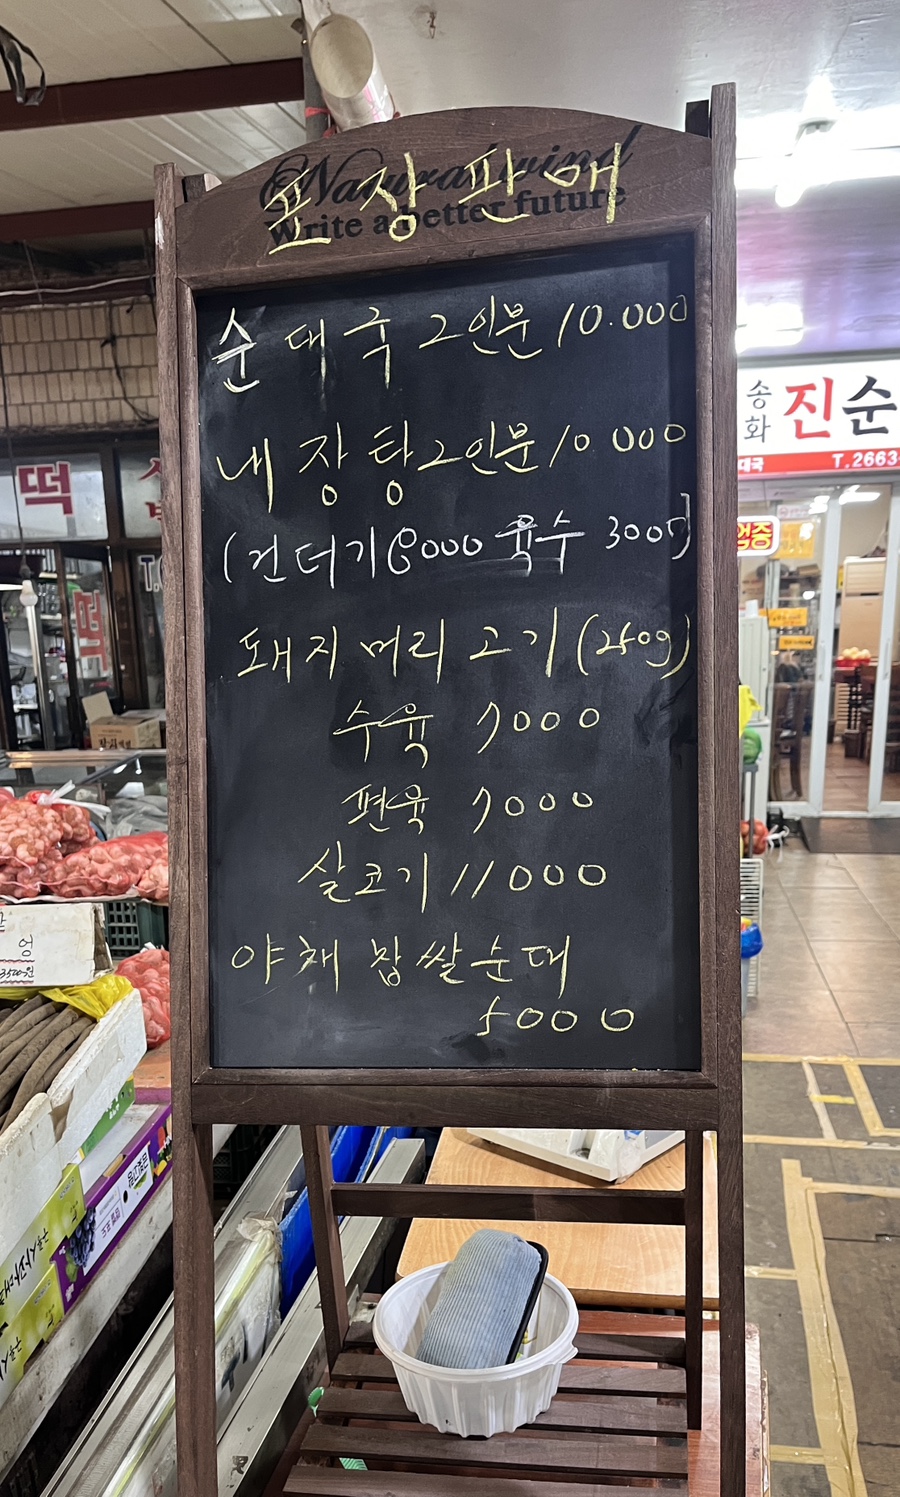 Natural wind
Write a better future
포장판매
순대국 2인분 10.000
내장탕 2인분 10 000
(건더기 8000 육수 3000)
돼지머리고기(250g)
수육 7000
편육 7000
살코기 11000
야채 찹쌀순대
5000
송화
진순
대국 T.2663
업중
떡
3500원